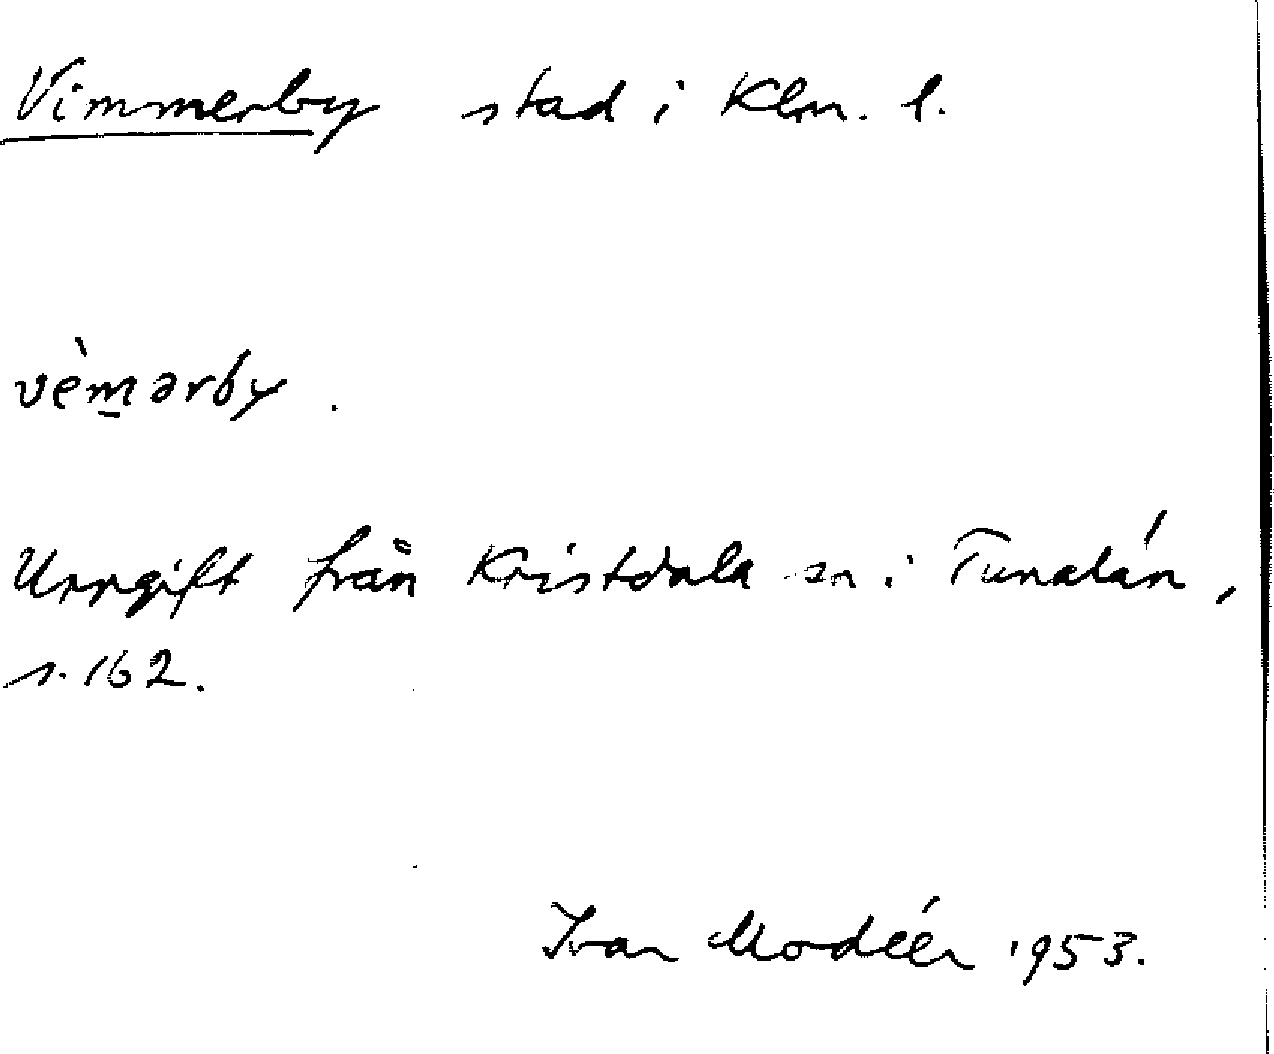 Vimmerby stad i Klm. l.
vèm̲ərby.
Uppgift från Kristdala sn i Tunalän,
s. 162.
Ivar Modéer 1953.